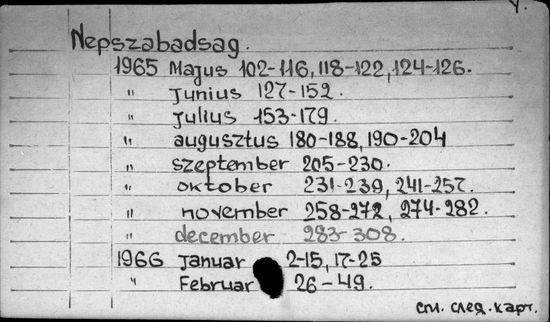 Y.
Nepszabadsag.
1965 Majus 102-116, 118-122, 124-126.
" Junius 127-152.
" Julius 153-179.
" augusztus 180-188, 190-204
" szeptember 205-230.
" oktober 231-239, 241-257.
" november 258-272, 274-282.
" december 283-308.
1966 Januar 2-15, 17-25
" Februar 26-49.
см. след. карт.